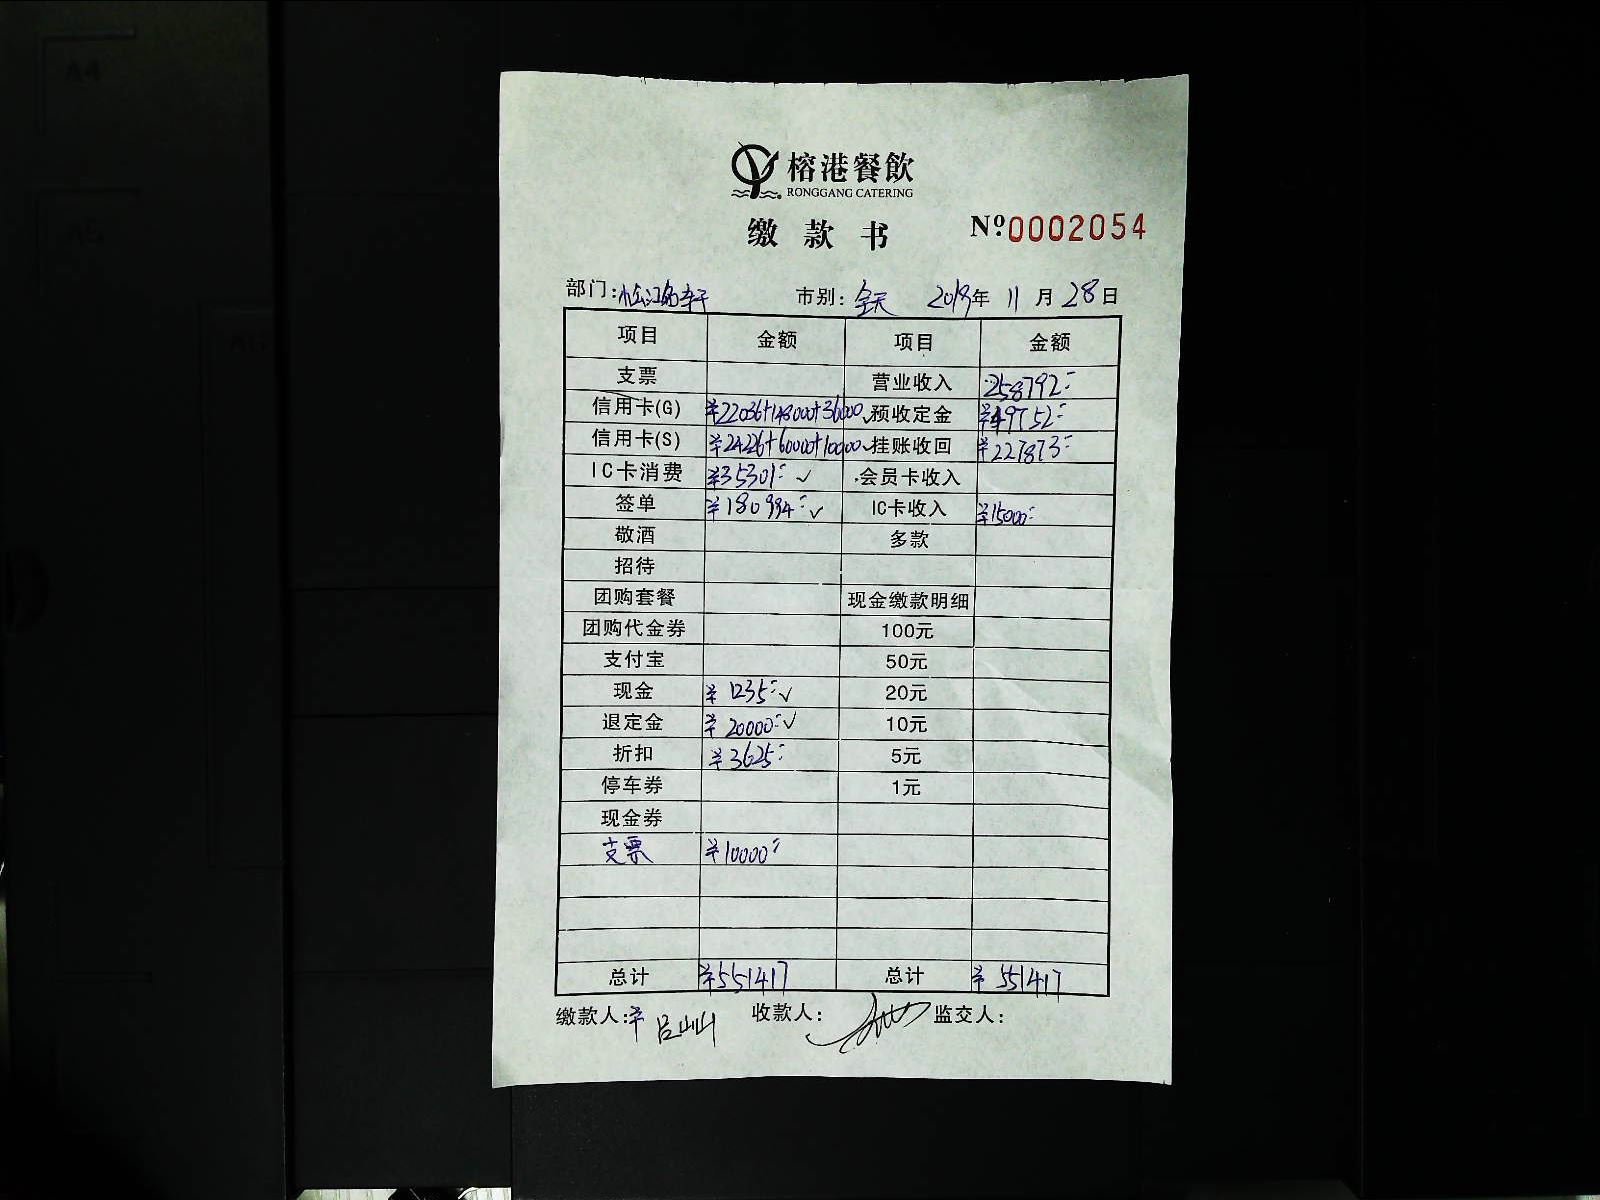 A4
A5
榕港餐飲
RONGGANG CATERING
缴款书 Nº0002054
部门: 市别: 全天 2019年 11月 28日
项目 金额 项目 金额
支票 营业收入 258792
信用卡(G) ¥22036+148000+36000 预收定金 ¥49752
信用卡(S) ¥24226+60000+10000 挂账收回 ¥227873
IC卡消费 ¥35301 ✓ 会员卡收入
签单 ¥180994 ✓ IC卡收入 ¥15000
敬酒 多款
招待
团购套餐 现金缴款明细
团购代金券 100元
支付宝 50元
现金 ¥1235 ✓ 20元
退定金 ¥20000 ✓ 10元
折扣 ¥3625 5元
停车券 1元
现金券
支票 ¥10000
总计 ¥551417 总计 ¥551417
缴款人: 吕山山 收款人: 监交人: